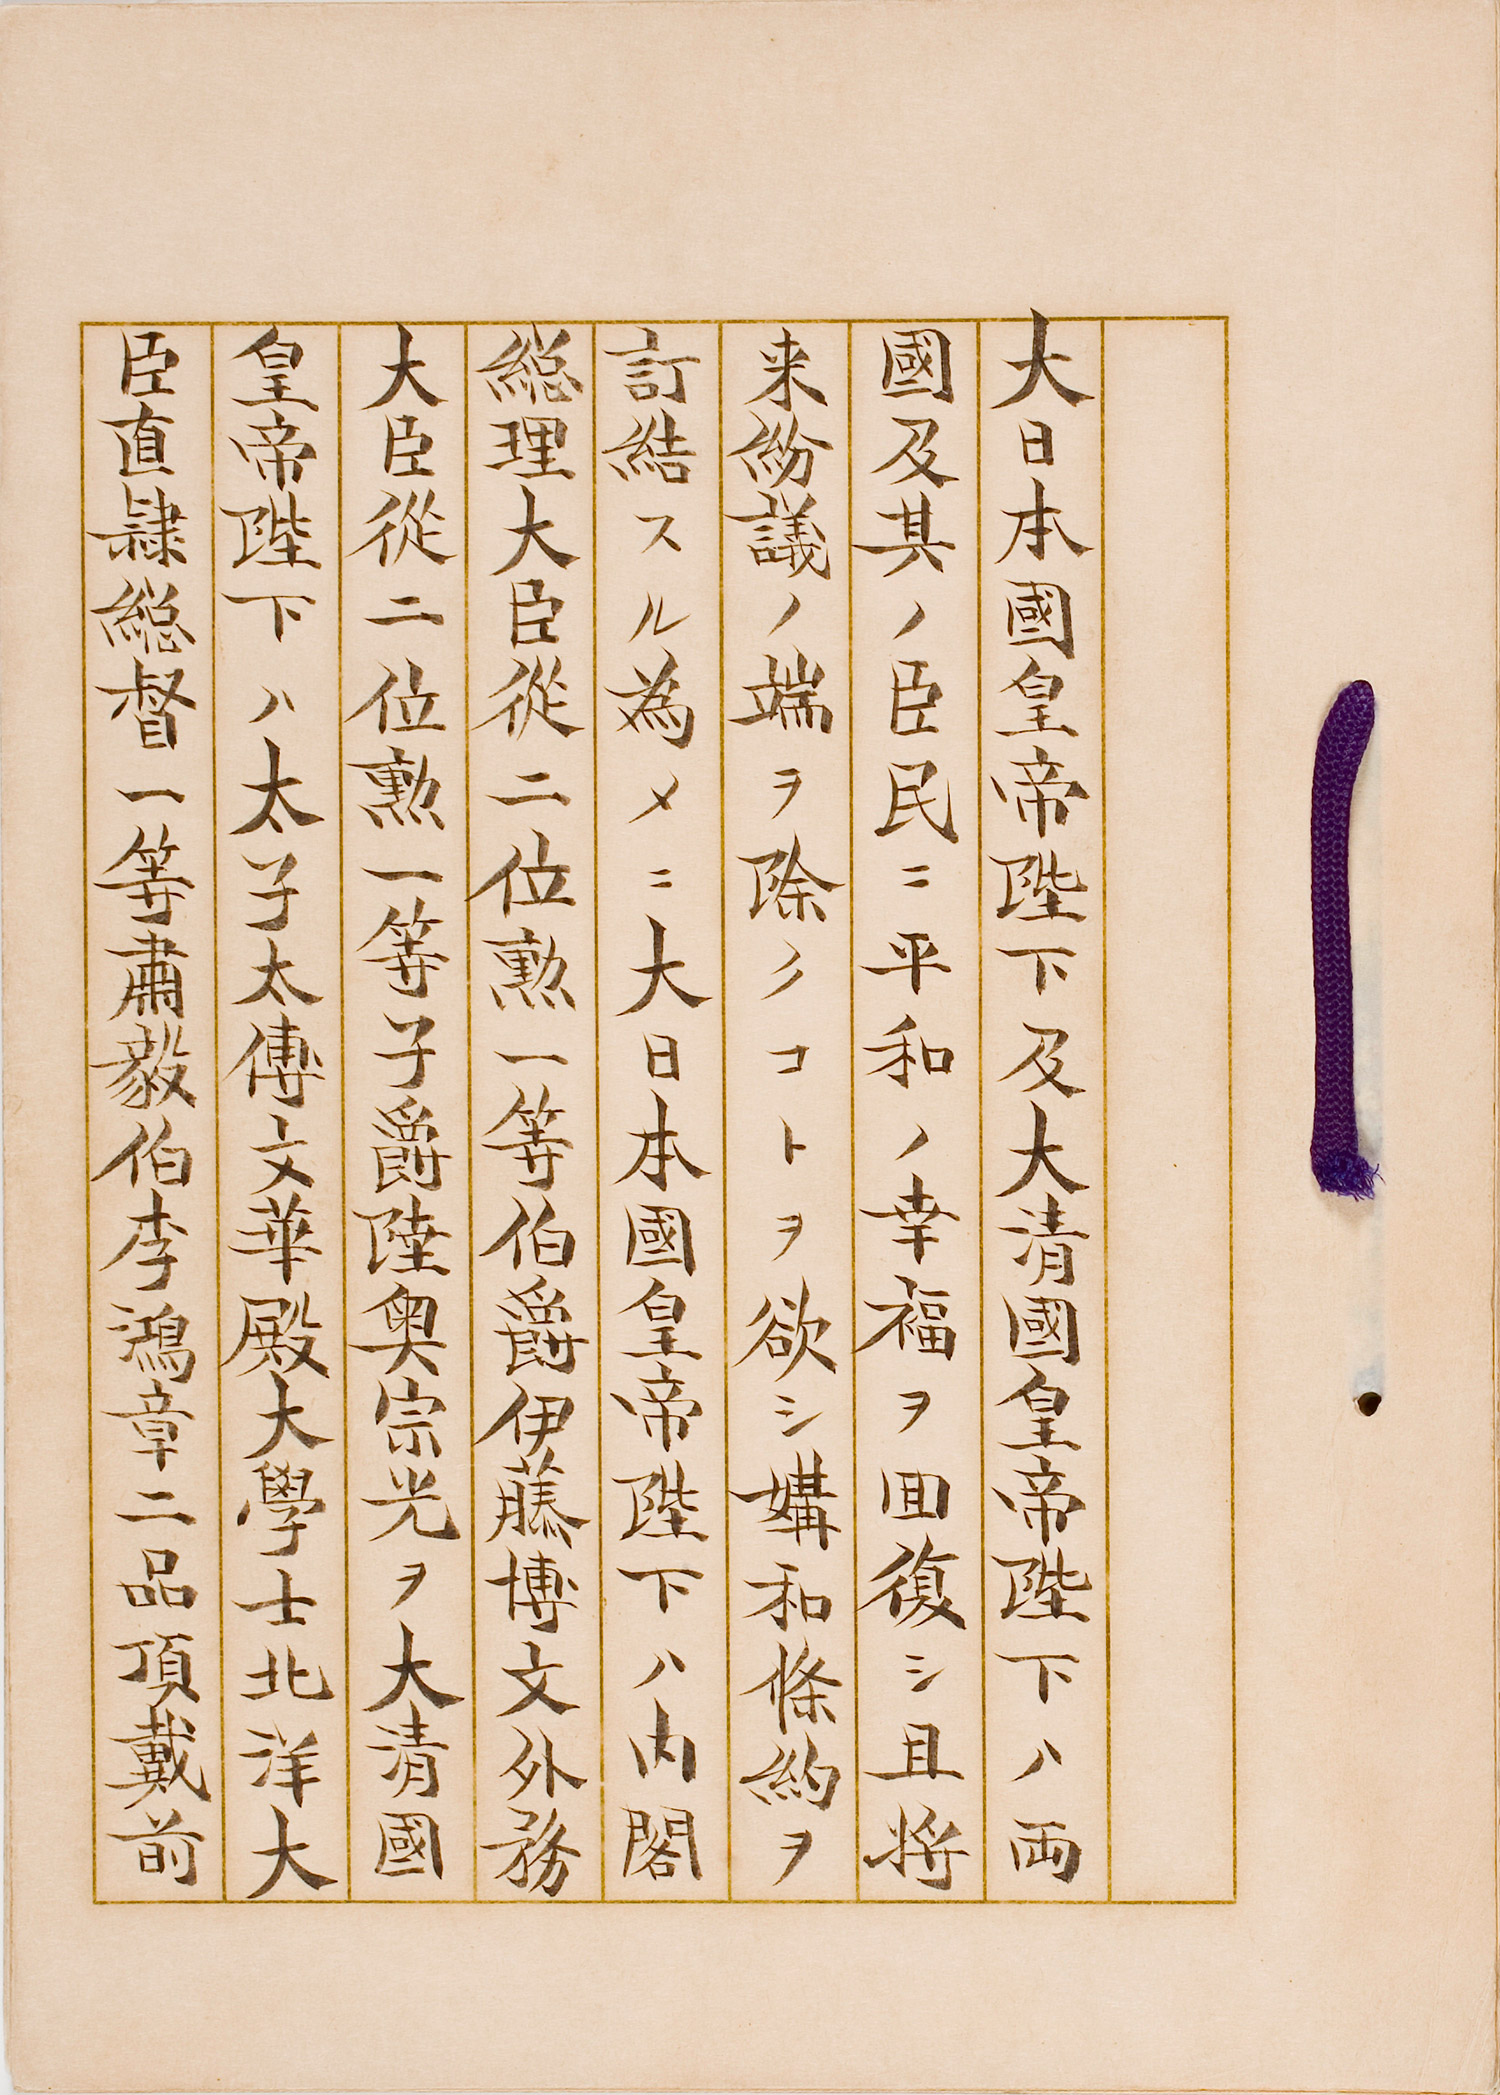 大日本國皇帝陛下及大清國皇帝陛下ハ両
國及其ノ臣民ニ平和ノ幸福ヲ囬復シ且将
来紛議ノ端ヲ除クコトヲ欲シ媾和條約ヲ
訂結スル為メニ大日本國皇帝陛下ハ内閣
總理大臣從二位勲一等伯爵伊藤博文外務
大臣從二位勲一等子爵陸奥宗光ヲ大清國
皇帝陛下ハ太子太傅文華殿大學士北洋大
臣直隷總督一等肅毅伯李鴻章二品頂戴前